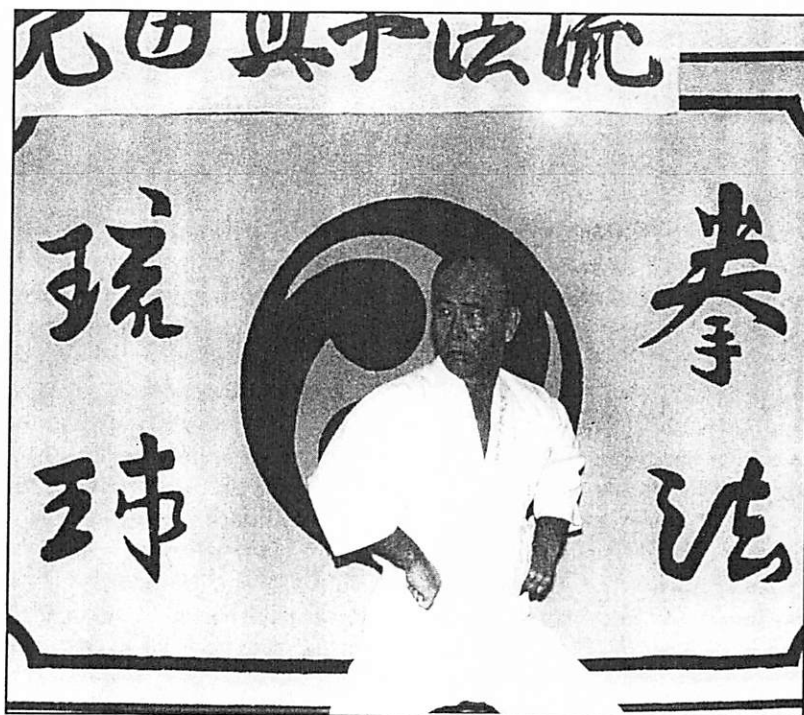 手法流
琉球
拳法